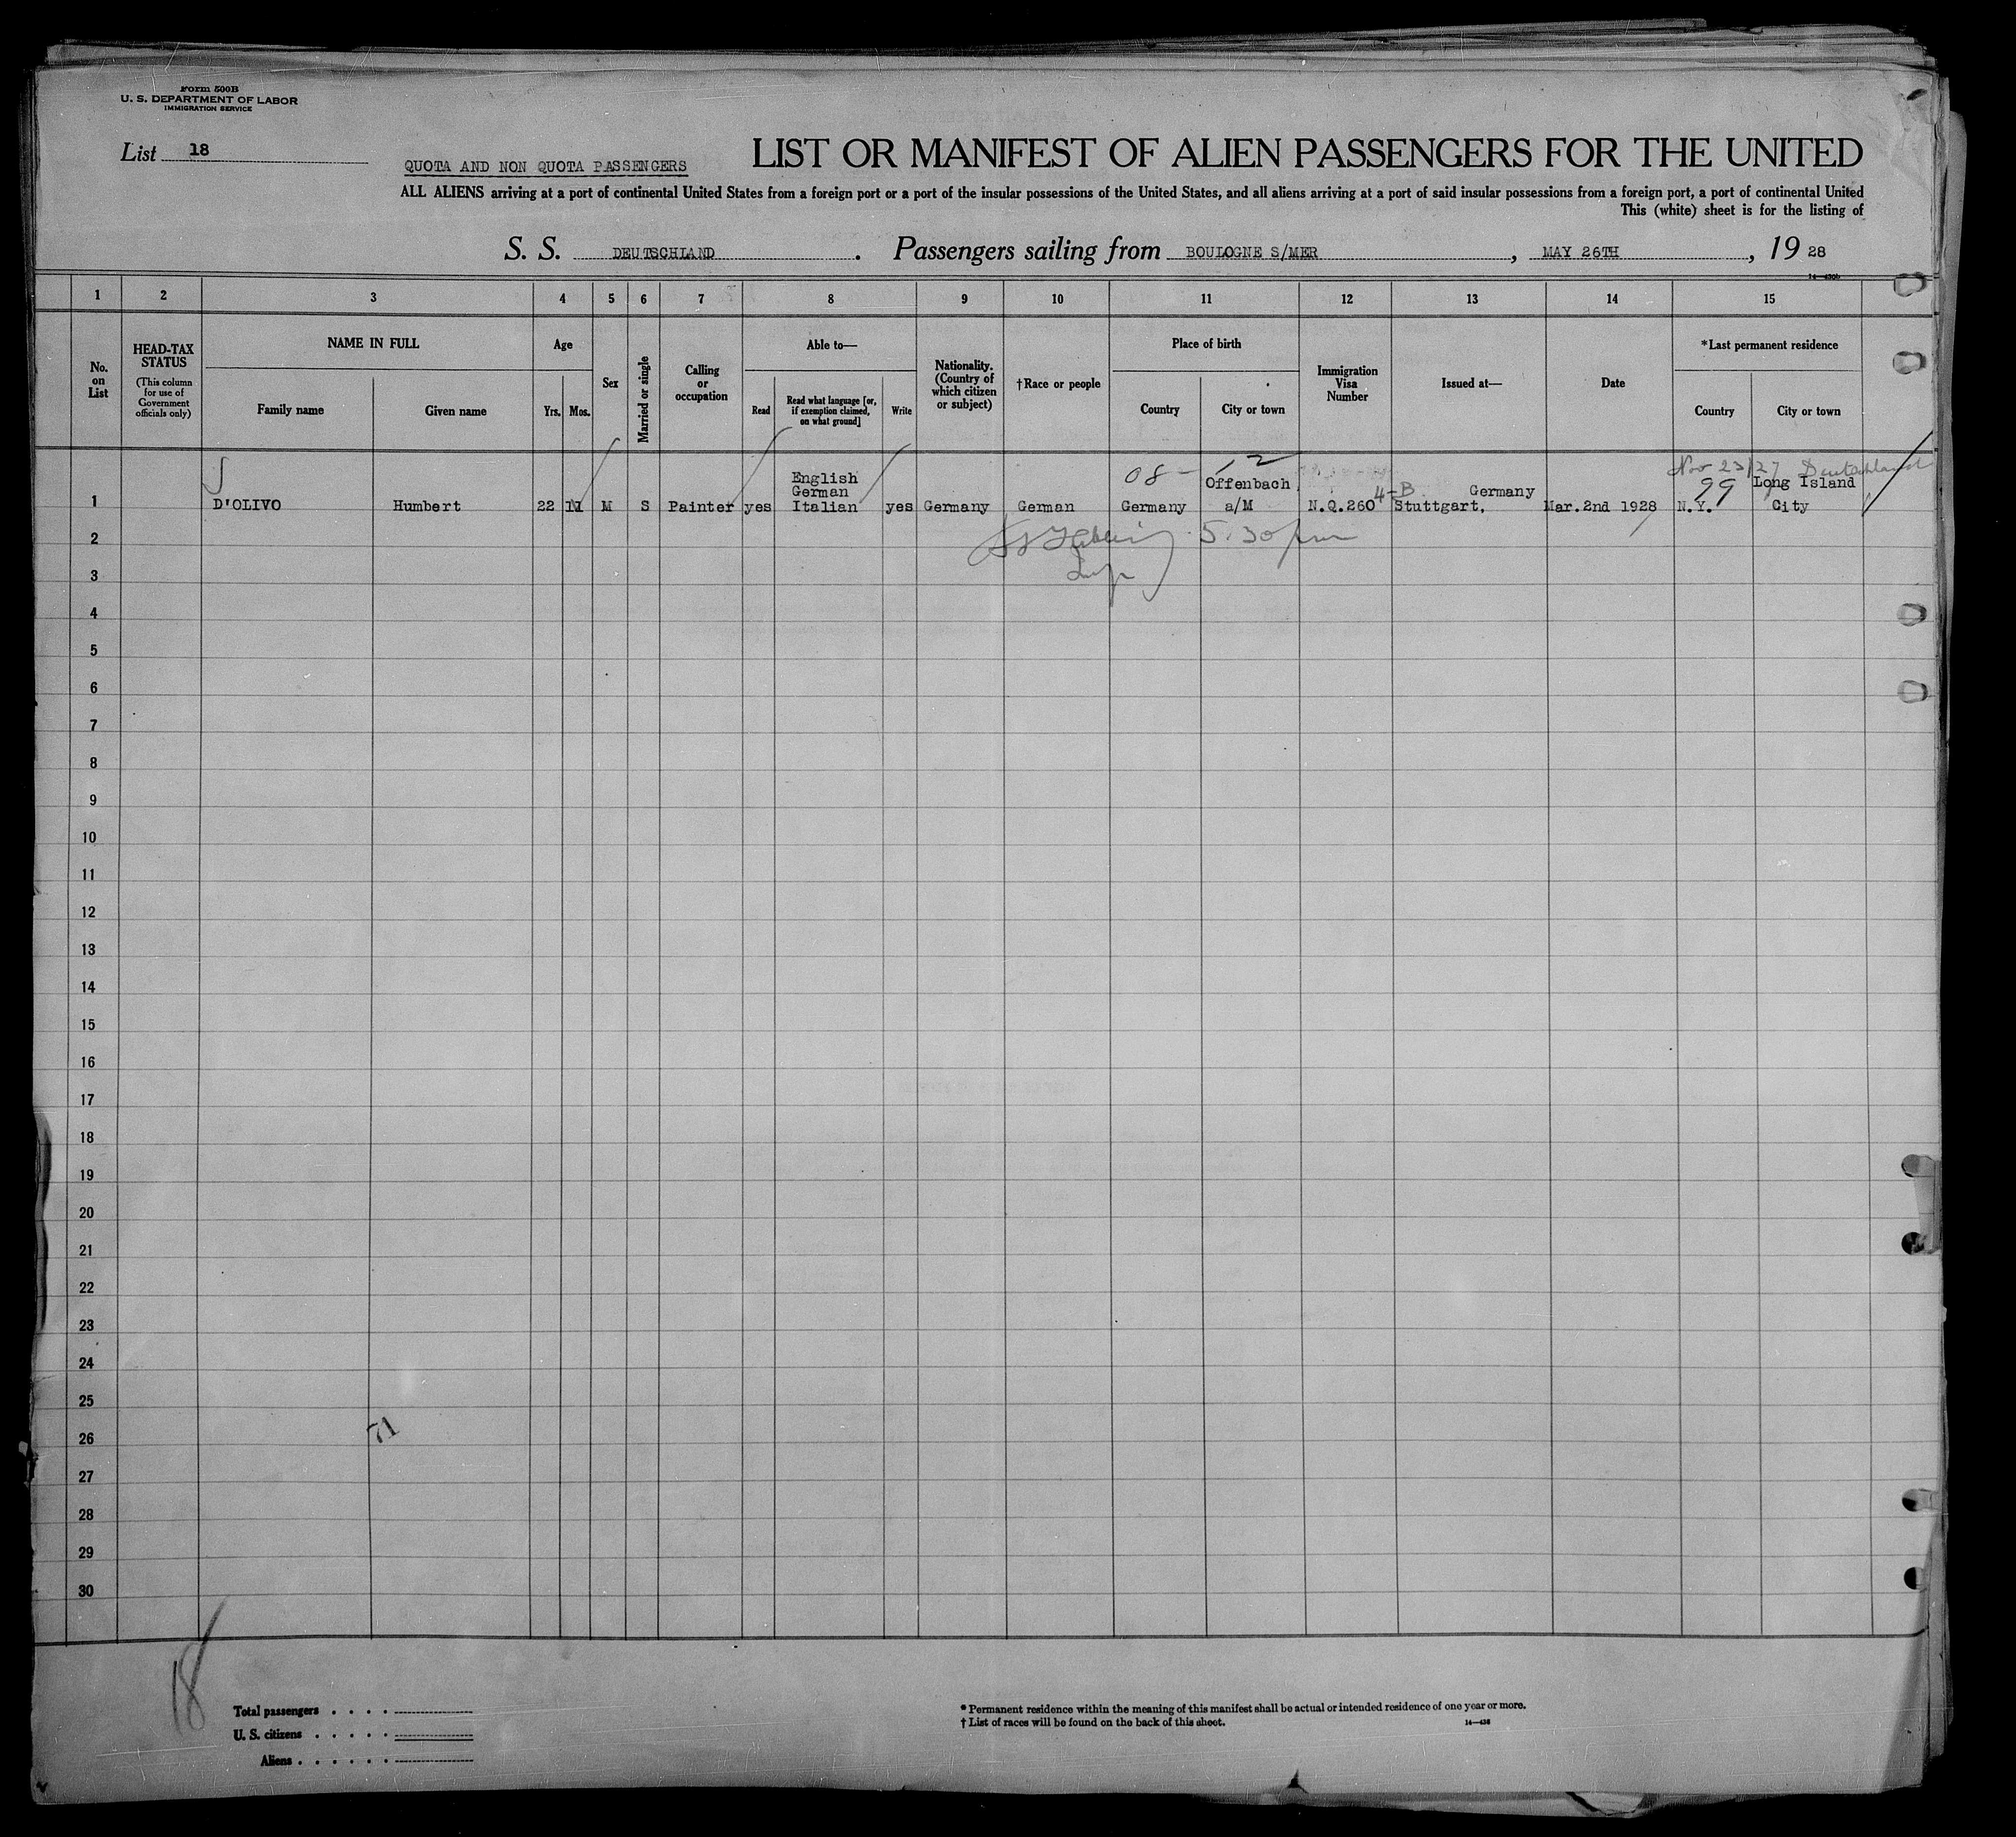 Form 500B
U. S. DEPARTMENT OF LABOR
IMMIGRATION SERVICE
List 18
QUOTA AND NON QUOTA PASSENGERS
LIST OR MANIFEST OF ALIEN PASSENGERS FOR THE UNITED
ALL ALIENS arriving at a port of continental United States from a foreign port or a port of the insular possessions of the United States, and all aliens arriving at a port of said insular possessions from a foreign port, a port of continental United
This (white) sheet is for the listing of
S. S. DEUTSCHLAND . Passengers sailing from BOULOGNE S/MER , MAY 26TH , 19 28
14—430b
1 2 3 4 5 6 7 8 9 10 11 12 13 14 15
No. on List
HEAD-TAX STATUS
(This column for use of Government officials only)
NAME IN FULL
Family name
Given name
Age
Yrs. Mos.
Sex
Married or single
Calling or occupation
Able to—
Read
Read what language [or, if exemption claimed, on what ground]
Write
Nationality. (Country of which citizen or subject)
†Race or people
Place of birth
Country
City or town
Immigration Visa Number
Issued at—
Date
*Last permanent residence
Country
City or town
Nov 23/27 Deutschland
08 - 12
99
1 D'OLIVO Humbert 22 M M S Painter yes English German Italian yes Germany German Germany Offenbach a/M N.Q.260 4-B Stuttgart, Germany Mar.2nd 1928 N.Y. Long Island City
2
5.30 pm
3
4
5
6
7
8
9
10
11
12
13
14
15
16
17
18
19
20
21
22
23
24
25
26
71
27
28
29
30
18
Total passengers
U. S. citizens
Aliens
* Permanent residence within the meaning of this manifest shall be actual or intended residence of one year or more.
† List of races will be found on the back of this sheet.
14—438